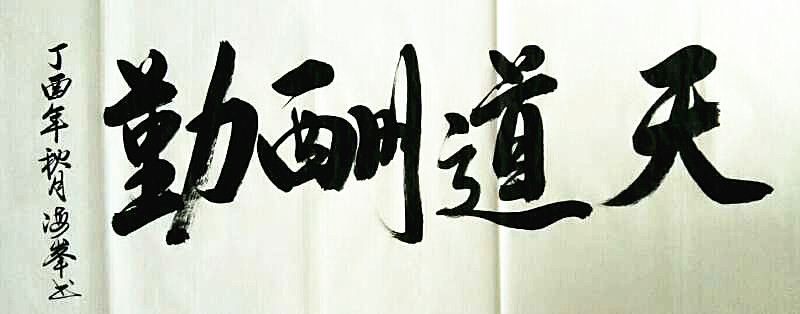 天道酬勤
丁酉年秋月海峰书